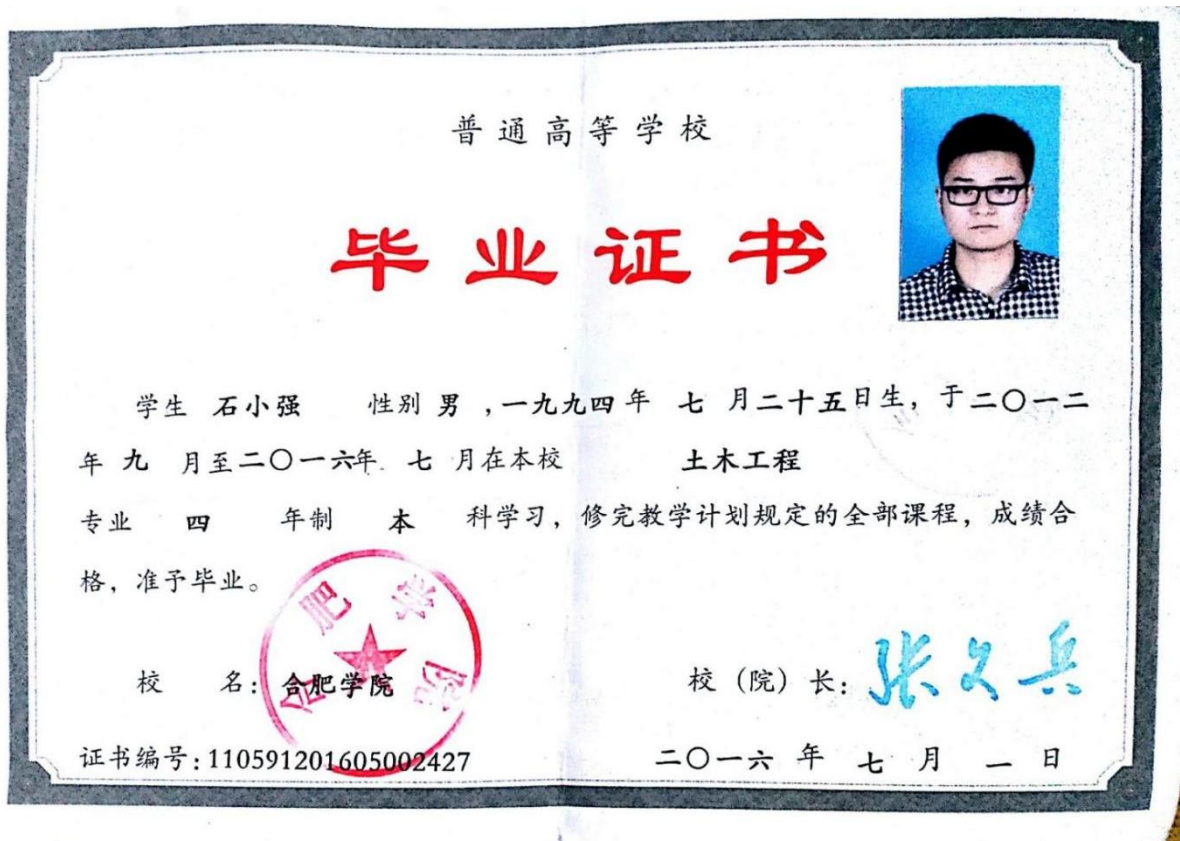 普通高等学校
毕业证书
学生 石小强 性别 男 ,一九九四年 七 月二十五日生, 于二〇一二
年 九 月至二〇一六年 七 月在本校 土木工程
专业 四 年制 本 科学习, 修完教学计划规定的全部课程, 成绩合
格, 准予毕业。
合肥学院
校 名: 合肥学院
校 (院) 长: 张文兵
证书编号: 110591201605002427
二〇一六 年 七 月 一 日